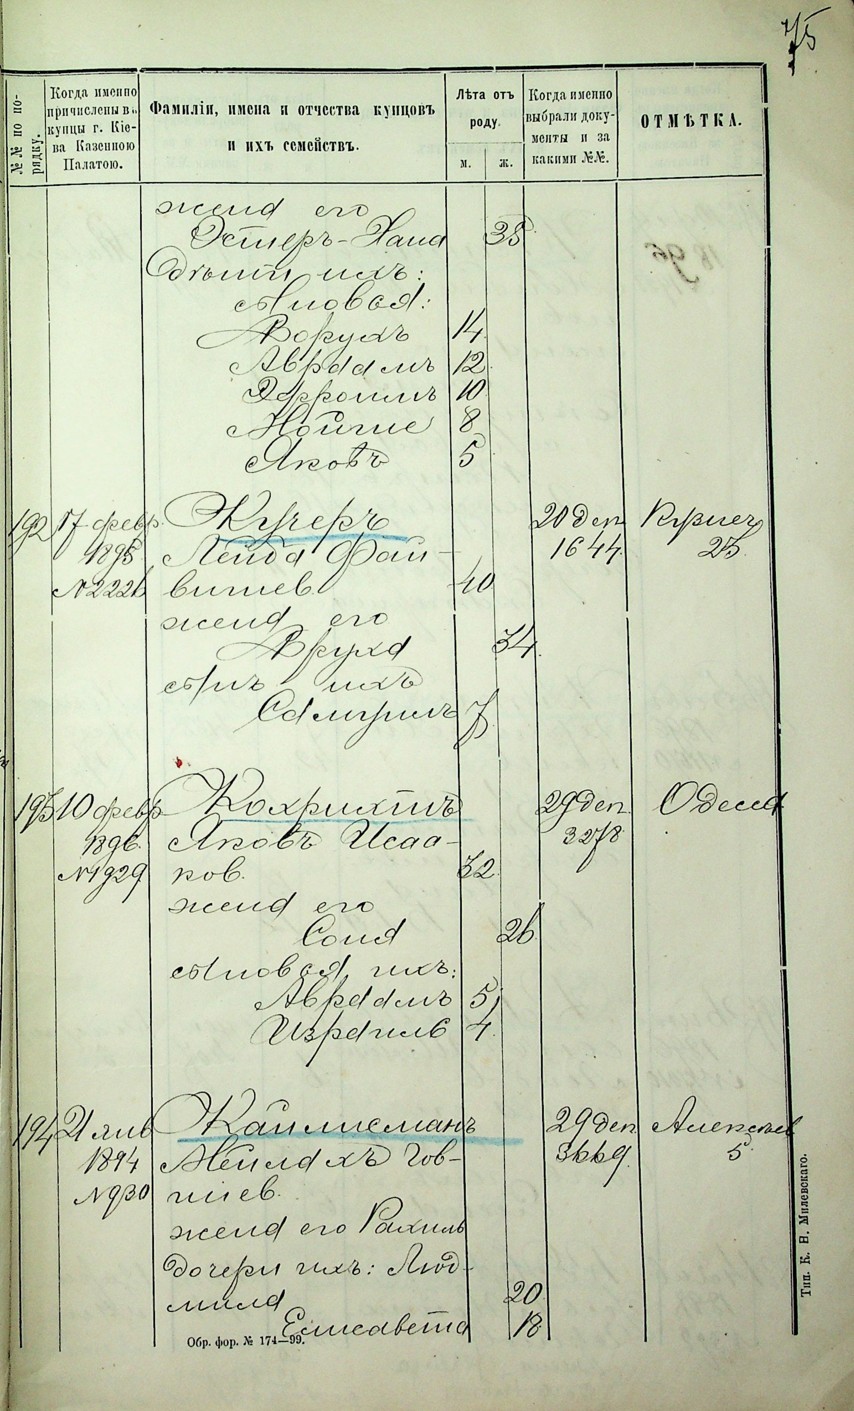 75
№№ по по-
рядку.
Когда именно
причислены в
купцы г. Кіе-
ва Казенною
Палатою.
Фамиліи, имена и отчества купцовъ
и ихъ семействъ.
Лѣта отъ
роду.
м. ж.
Когда именно
выбрали доку-
менты и за
какими №№.
ОТМѢТКА.
жена его
Эстеръ-Хана 38
Дѣти ихъ:
сыновья:
Борухъ 14
Авраамъ 12
Эфроимъ 10
Мойше 8
Яковъ 5
192 17 февр. Кучеръ 20 дек.
1895 Лейба Фай- 1644 25
№2226 вишев. 40
жена его
Бруха 34
сынъ ихъ
7
193 10 февр. Кохрихтъ 29 дек. Одесса
1896 Яковъ Исаа- 3278
№1929 ков. 32
жена его
Соня 26
сыновья ихъ:
Авраамъ 5
Израиль 4
194 21 янв. 29 дек.
1894 Мейлахъ Іов- 3669 5
№930 шев.
жена его Рахиль
дочери ихъ: Люд-
мила 20
Елисавета 18
Обр. фор. № 174—99.
Тип. К. Н. Милевскаго.